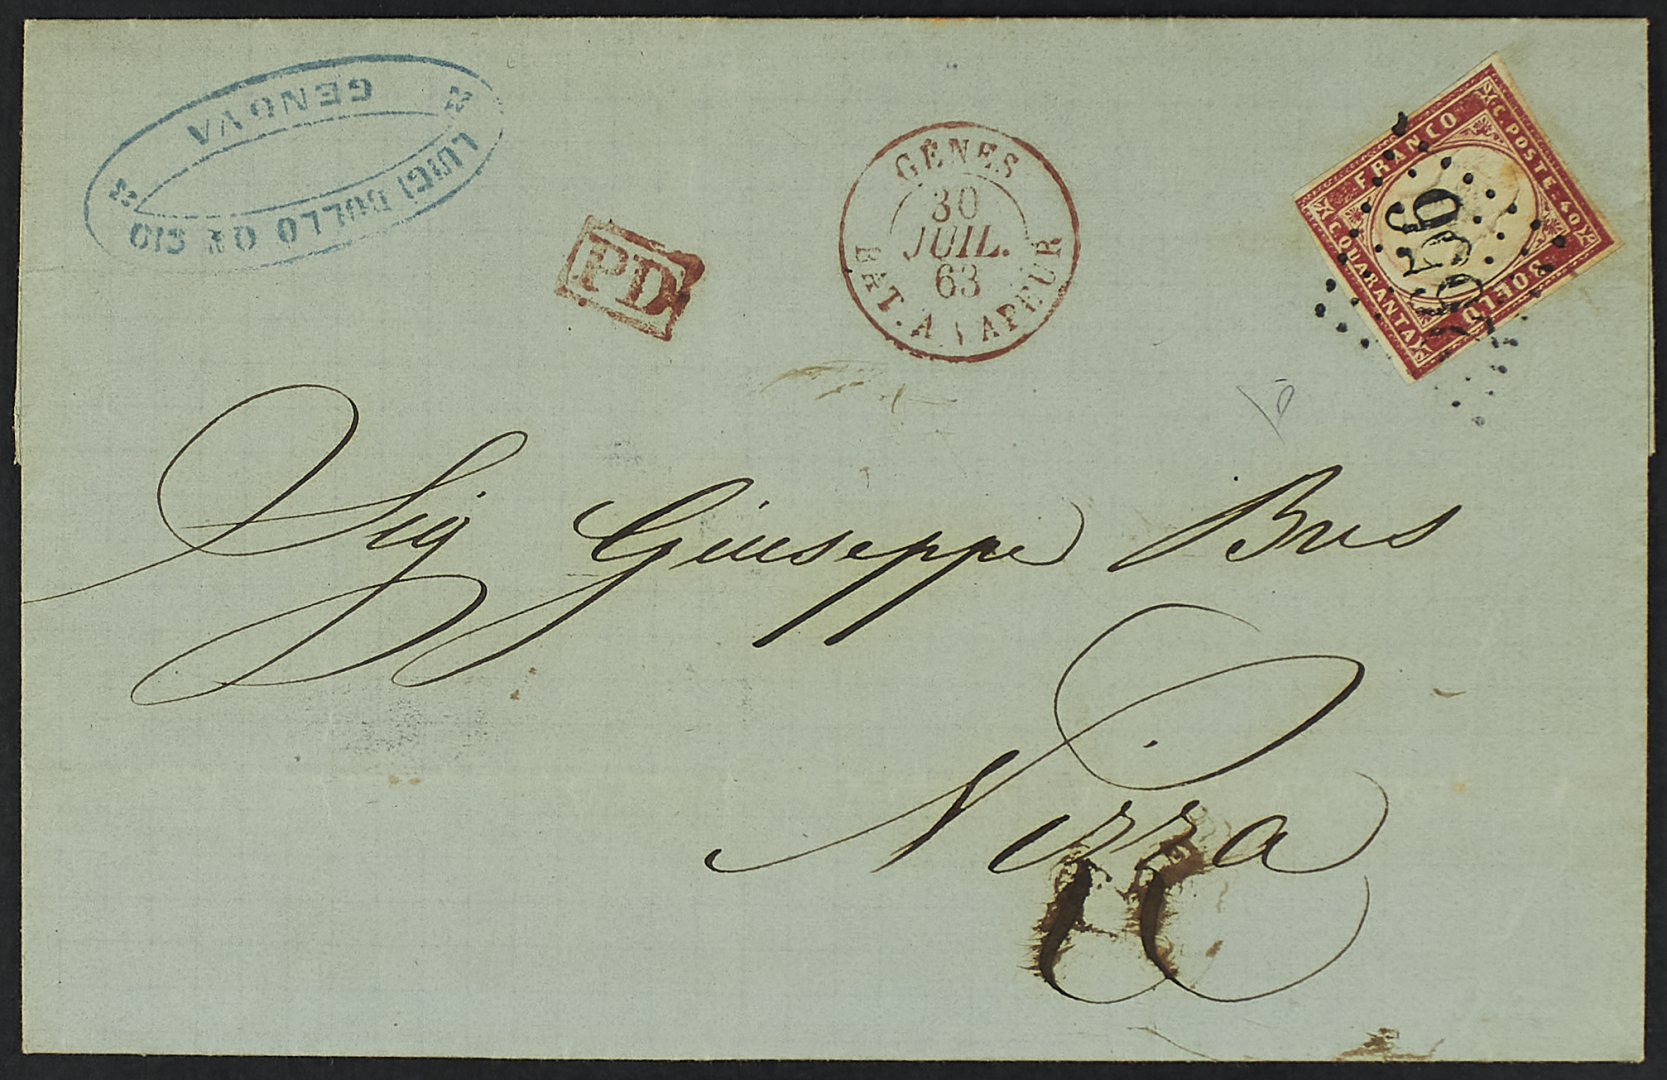 GENOVA
LUIGI DOLLO QM GIO
PD
GÊNES
30
JUIL.
63
BAT. A VAPEUR
FRANCO
C. POSTE. 40
BOLLO
C QUARANTA
2656
Sig Giuseppe Bus
Nizza